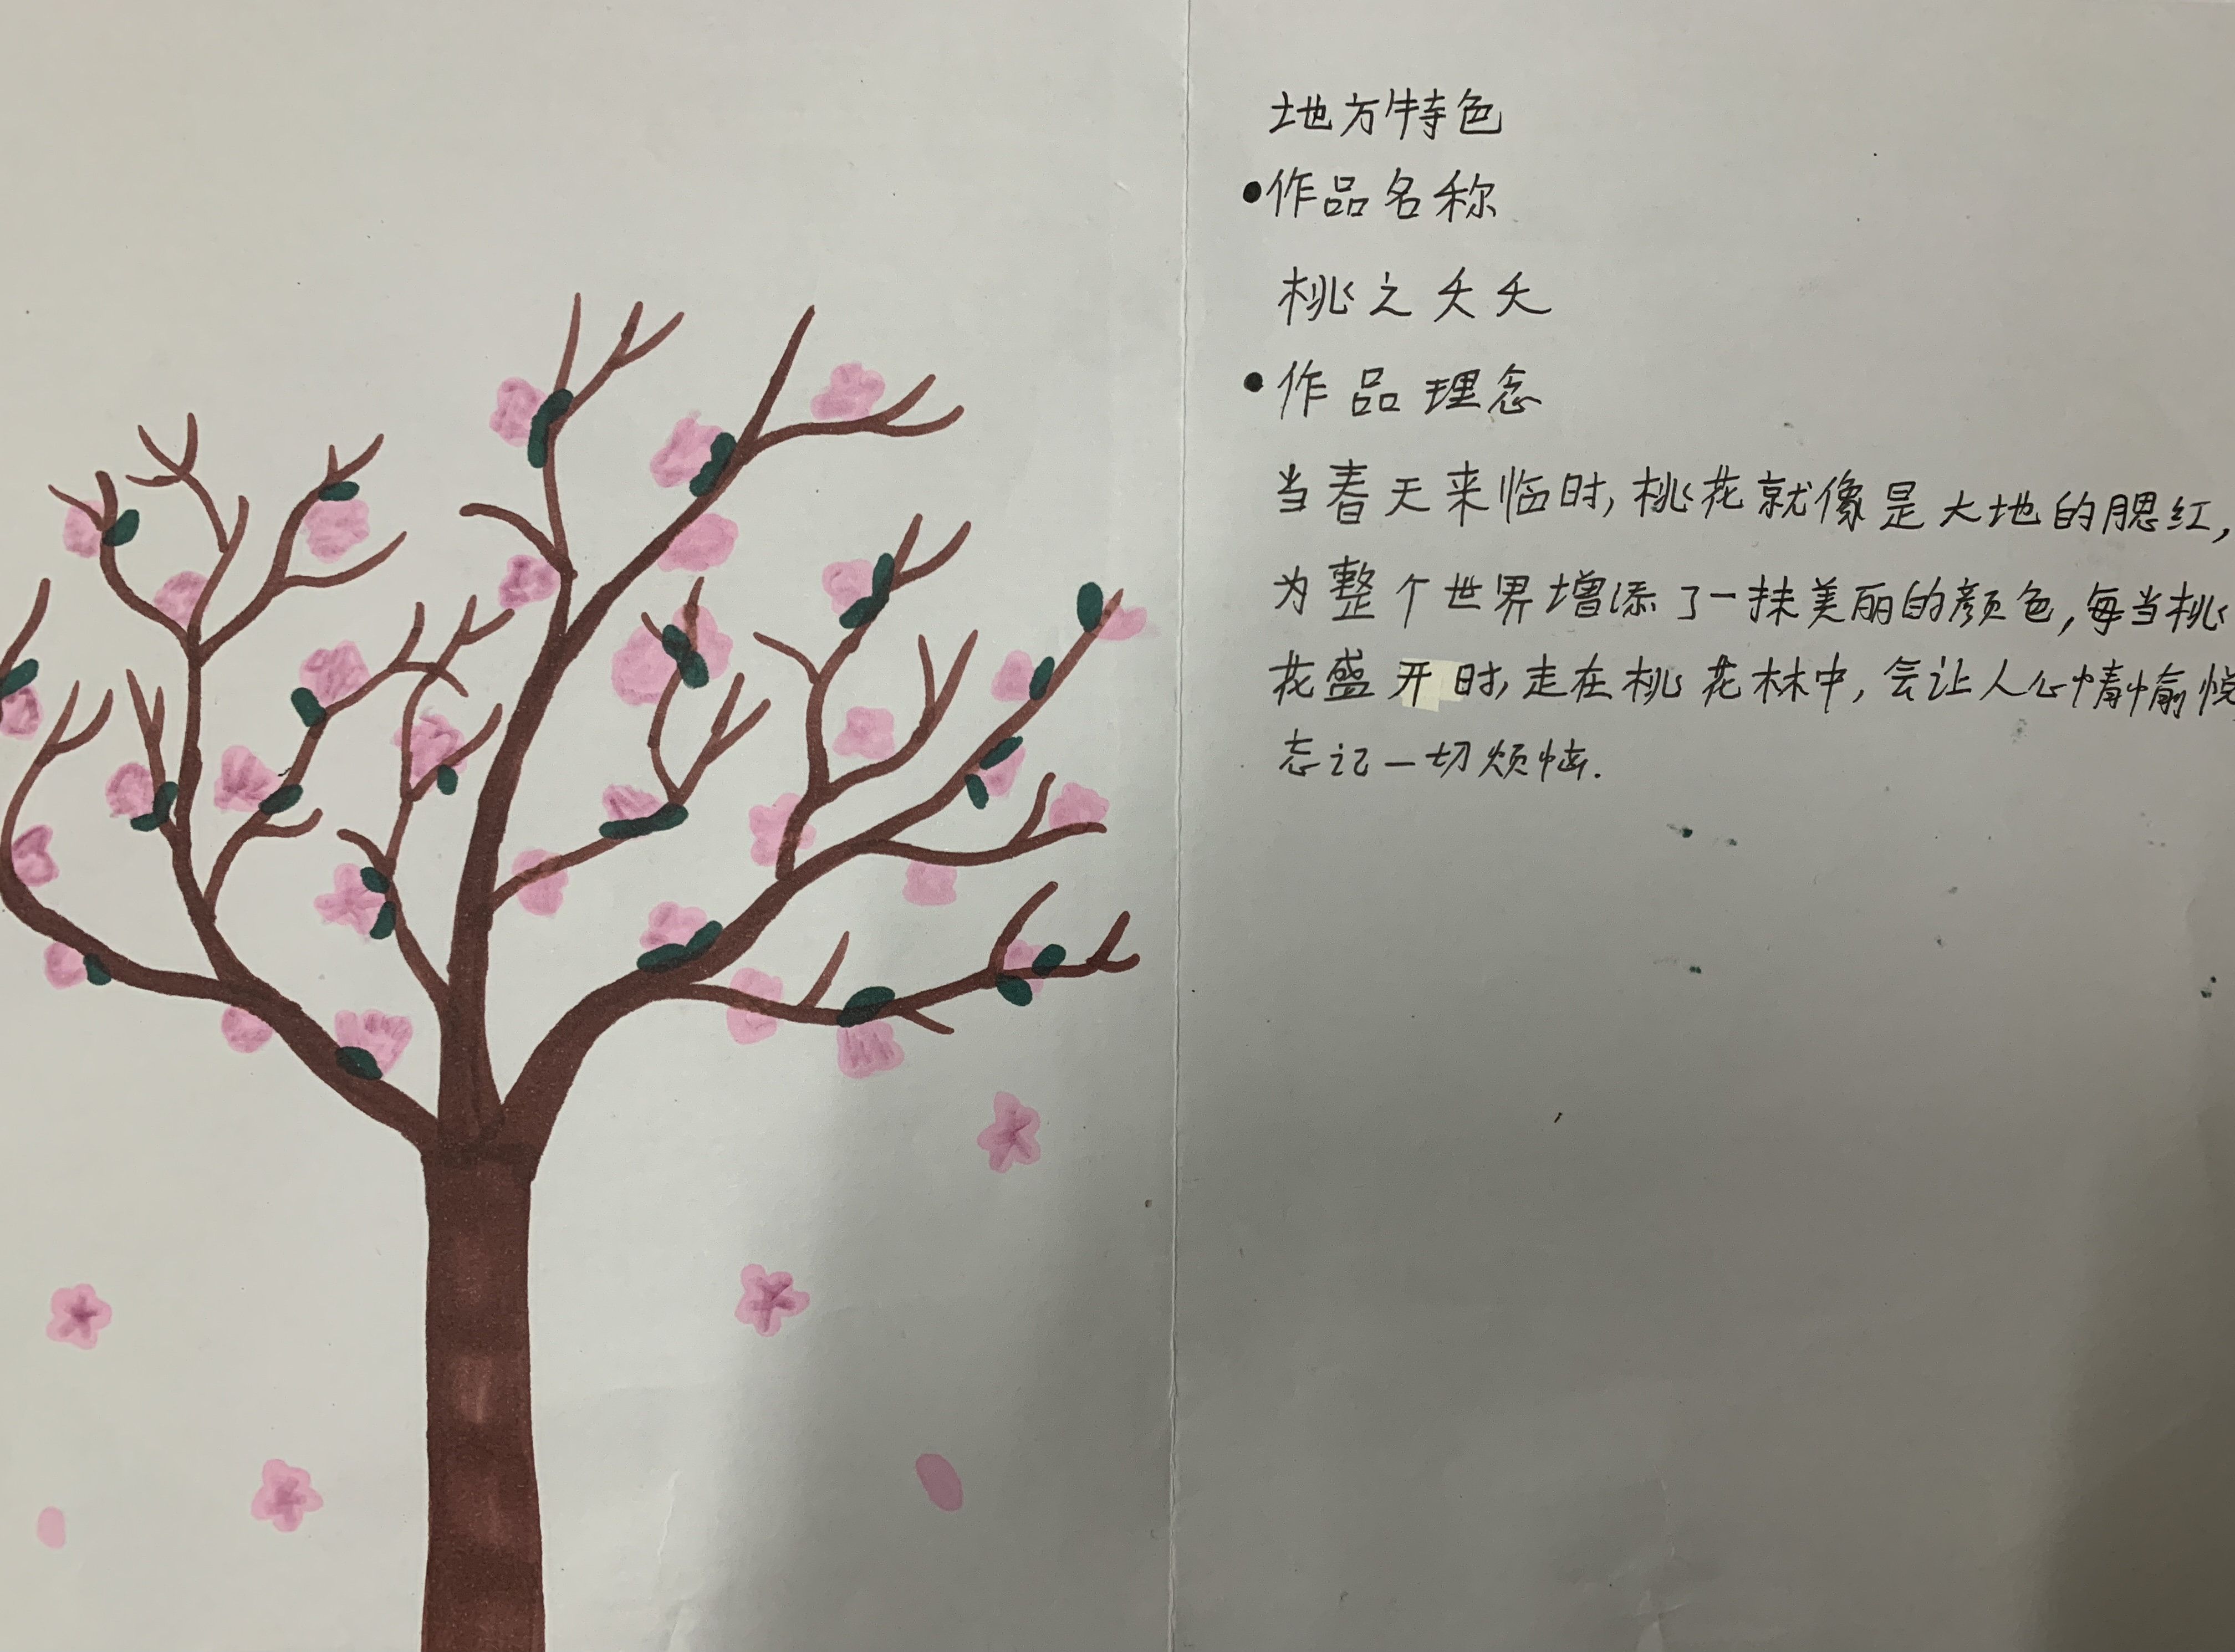 地方特色
•作品名称
桃之夭夭
•作品理念
当春天来临时,桃花就像是大地的腮红,
为整个世界增添了一抹美丽的颜色,每当桃
花盛开时,走在桃花林中,会让人心情愉悦
忘记一切烦恼.